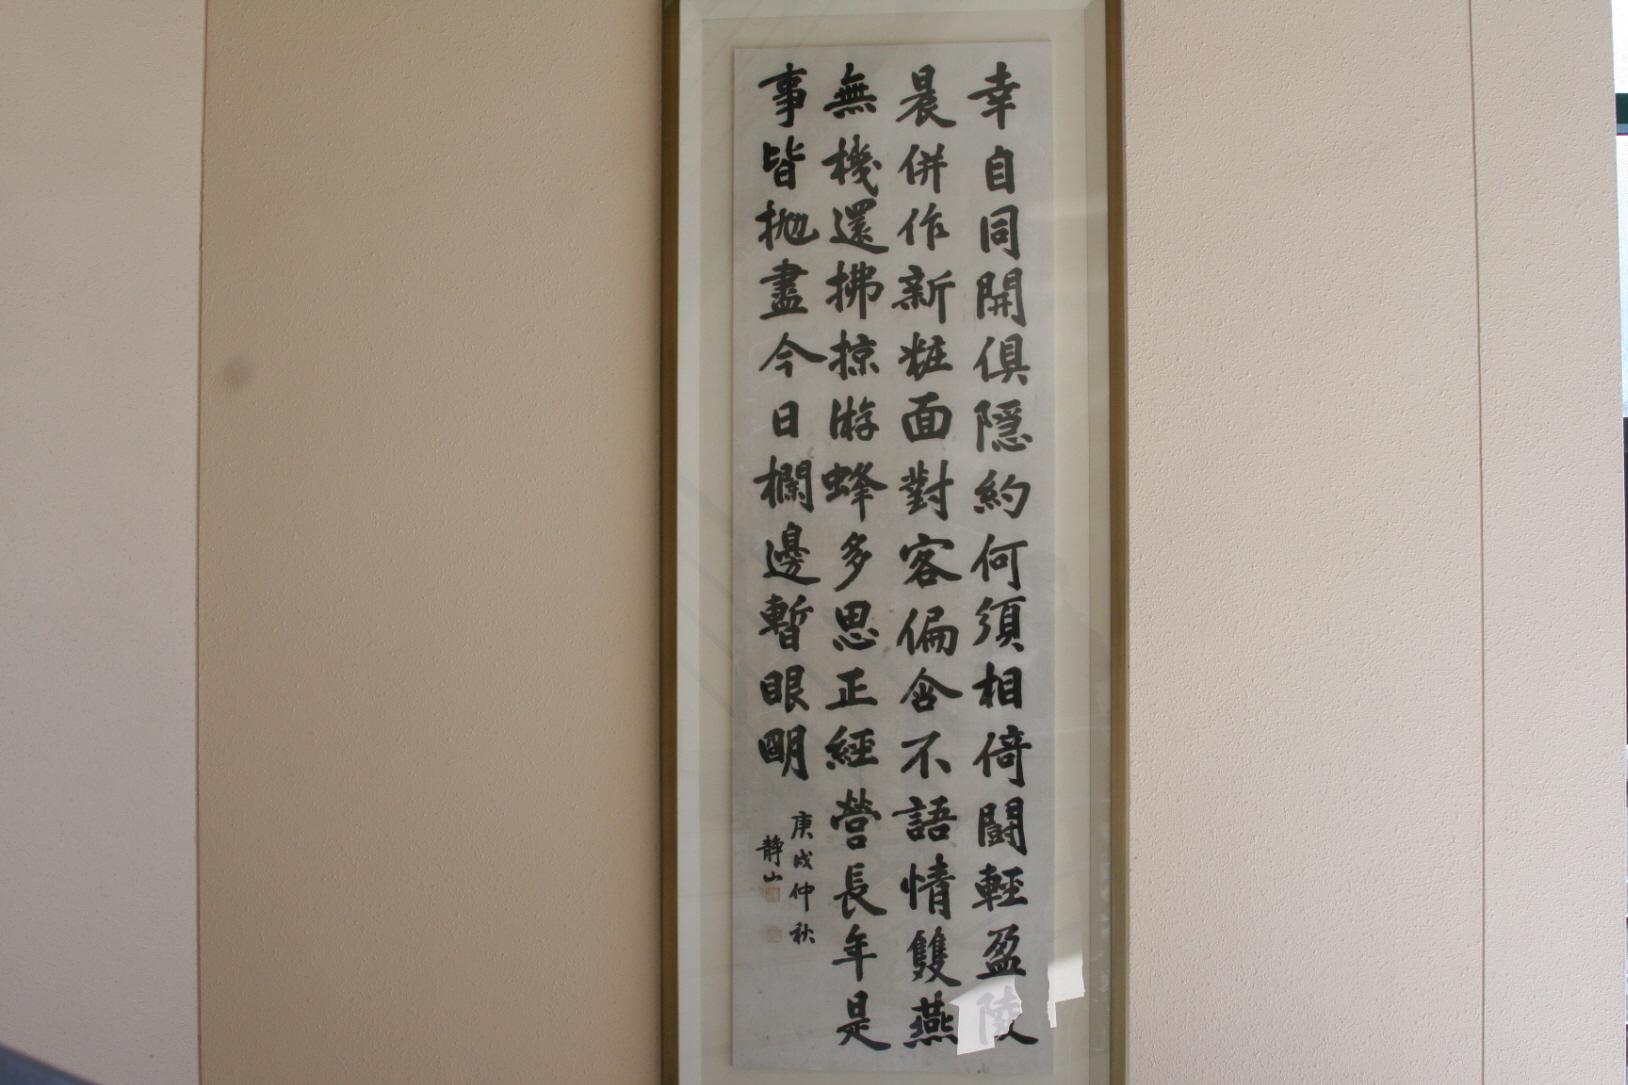 幸自同開俱隱約何須相倚鬪輕盈陵
晨併作新粧面對客偏含不語情雙燕
無機還拂掠游蜂多思正經營長年是
事皆抛盡今日欄邊暫眼明
庚戌仲秋
靜山